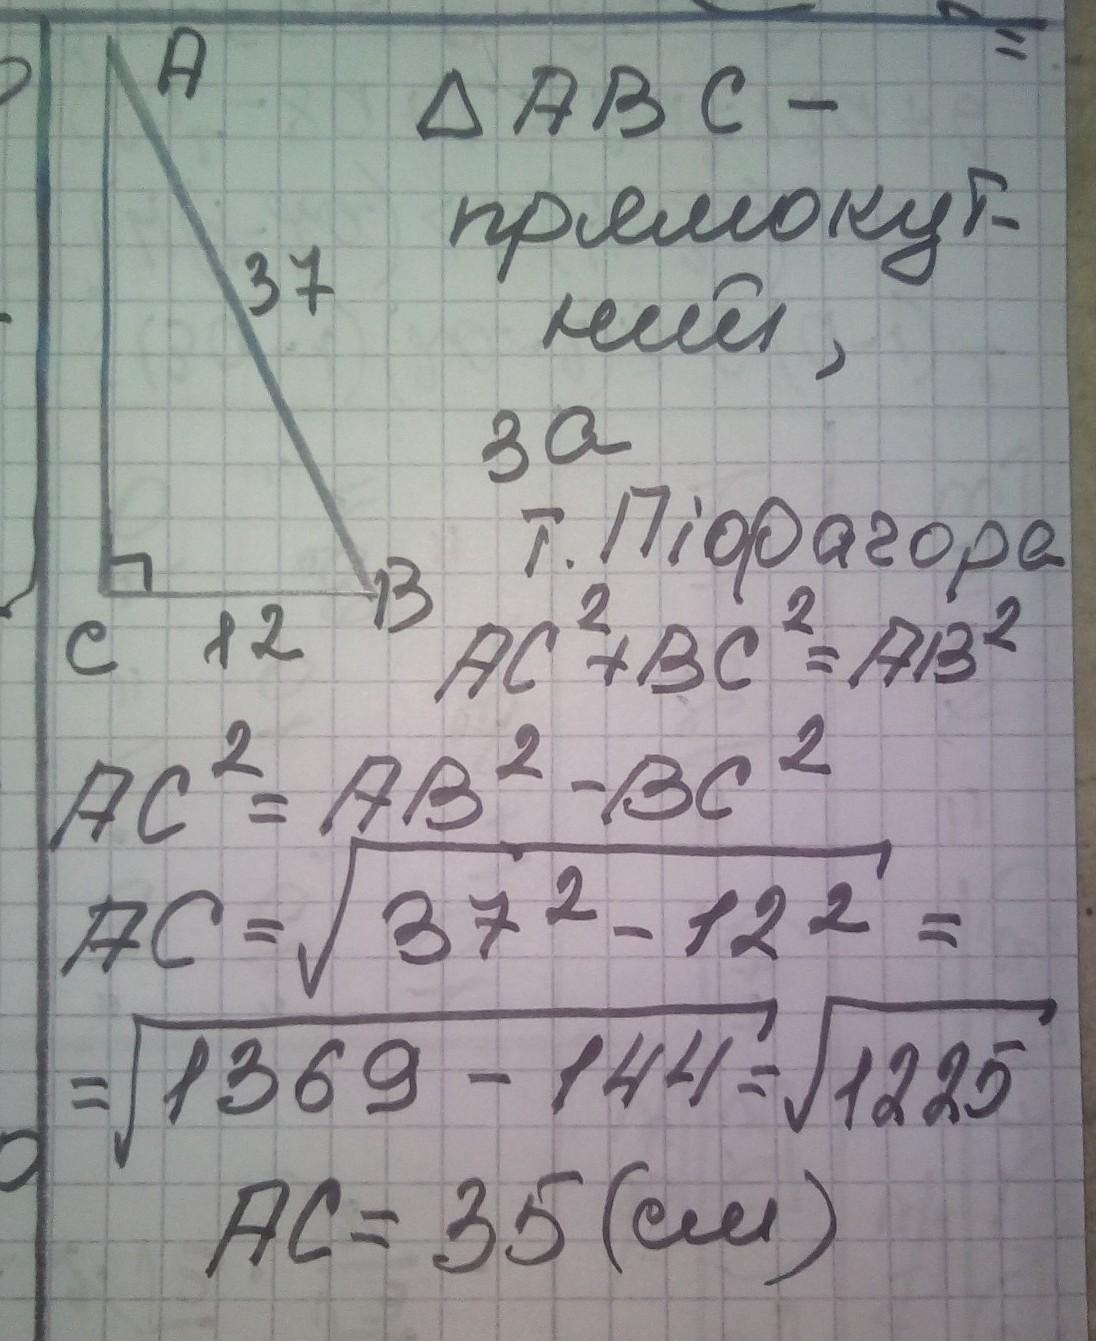 A
37
C 12 B
Δ ABC -
прямокут-
ний,
за
т. Піфагора
AC² + BC² = AB²
AC² = AB² - BC²
AC = √37² - 12² =
= √1369 - 144 = √1225
AC = 35 (см)